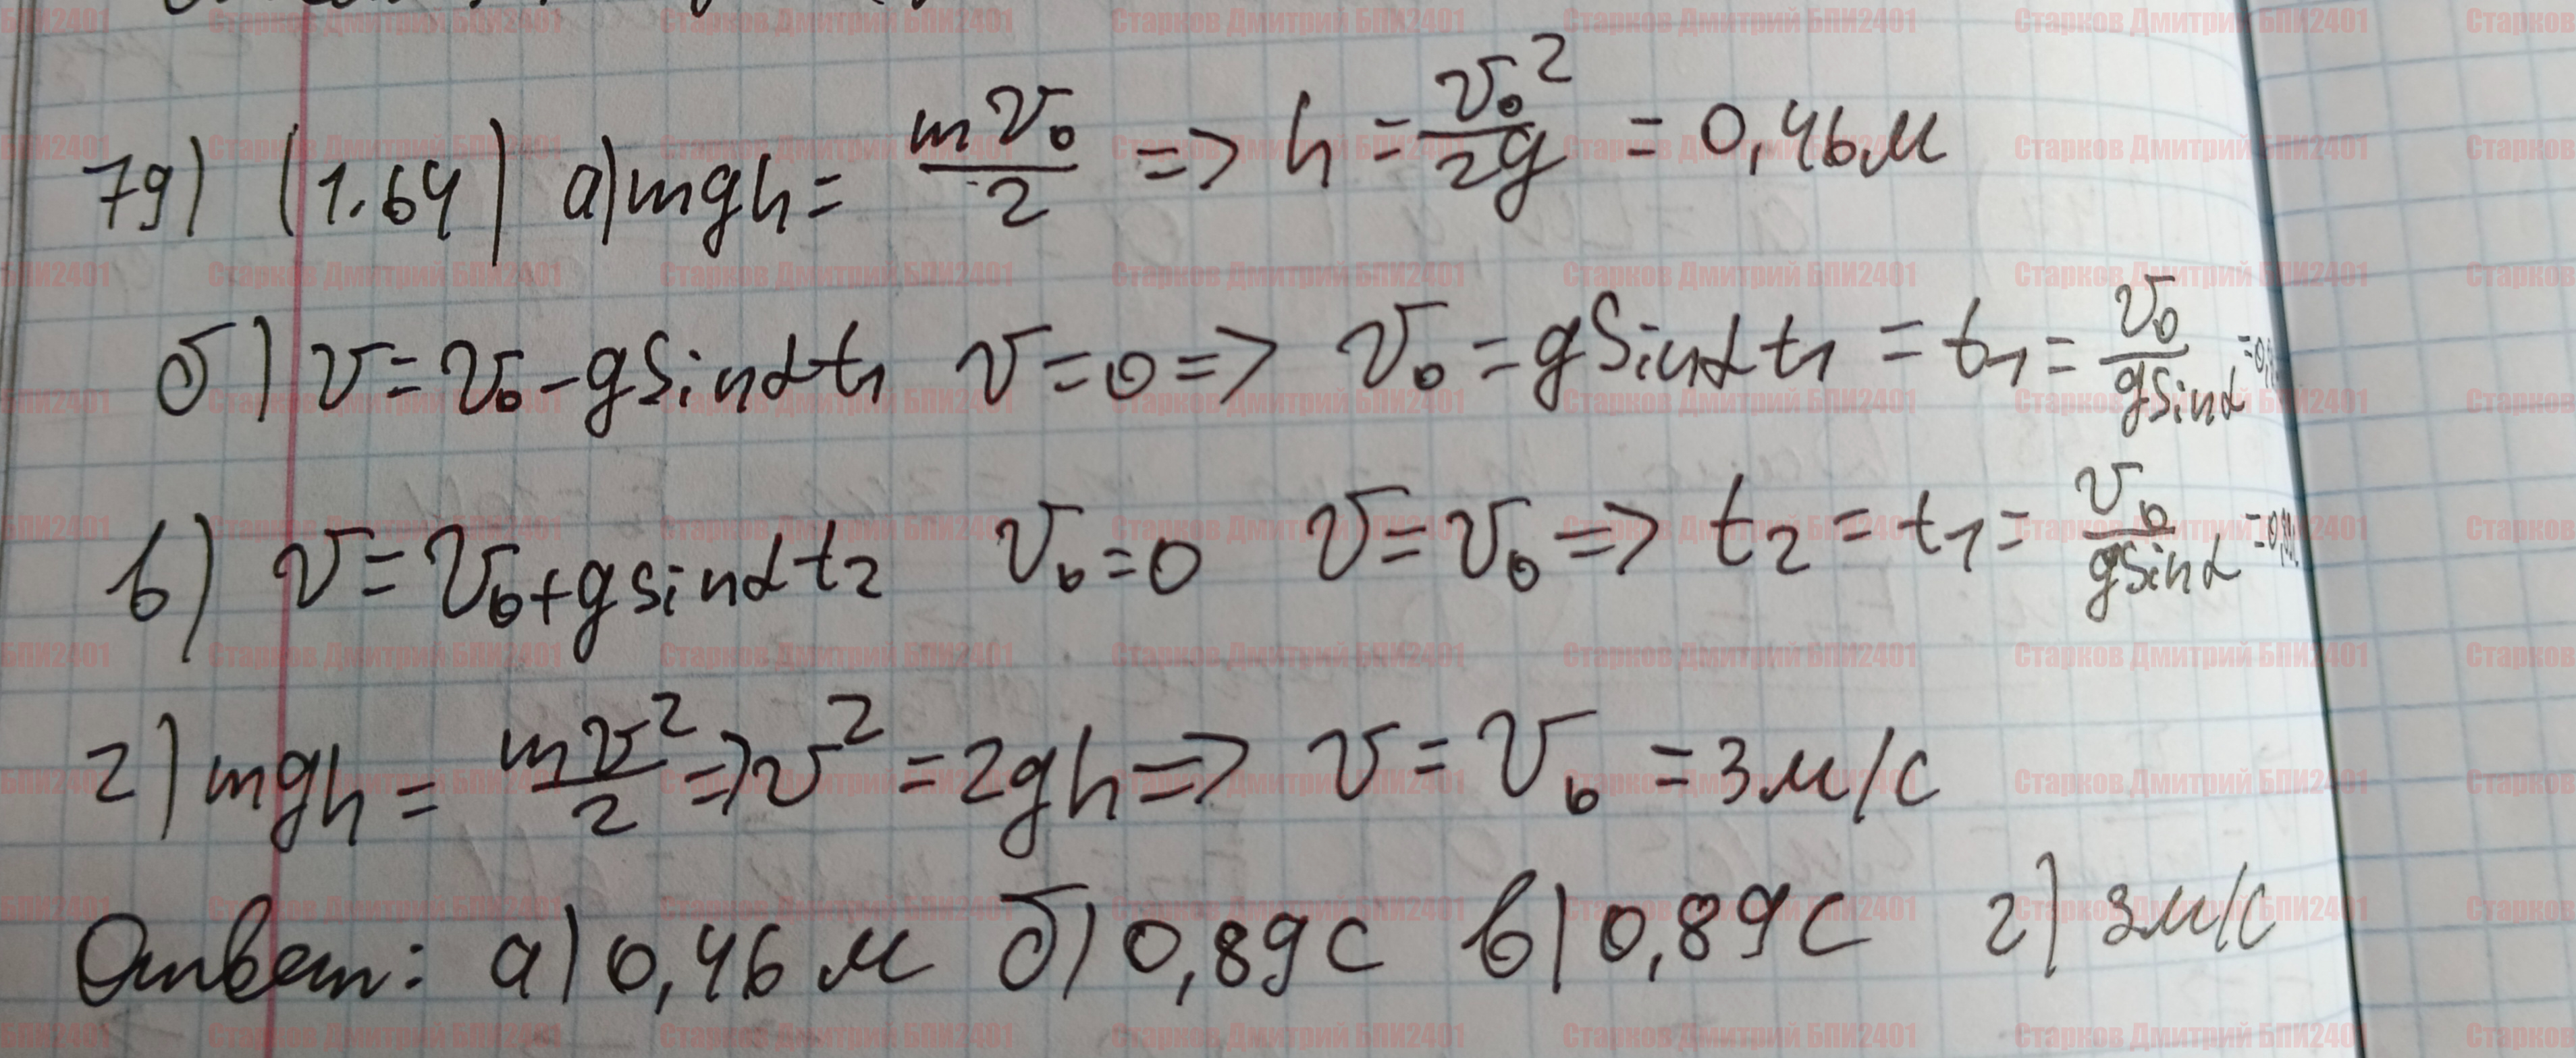 79) (1.64) а) mgh = mv₀/2 => h = v₀²/2g = 0,46м
б) v = v₀ - gSinαt₁ v = 0 => v₀ = gSinαt₁ = t₁ = v₀/gSinα
в) v = v₀ + gsinαt₂ v₀ = 0 v = v₀ => t₂ = t₁ = v₀/gSinα
г) mgh = mv²/2 => v² = 2gh => v = v₀ = 3м/с
Ответ: а) 0,46 м б) 0,89с в) 0,89с г) 3м/с
Старков Дмитрий БПИ2401